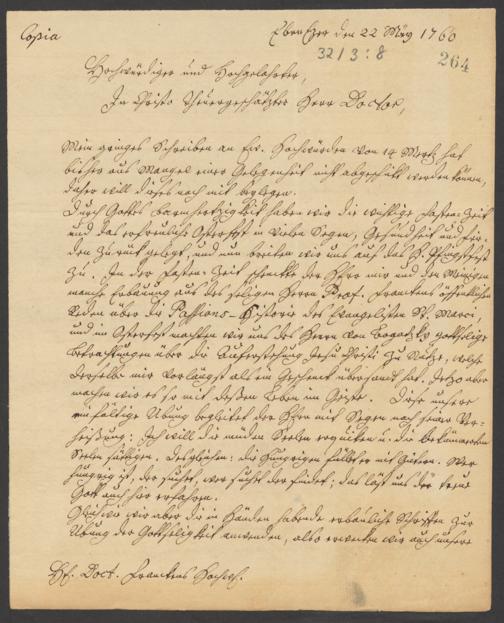 Copia
EbenEzer den 22 März 1760
3213:8
264
Hochwürdiger und Hochgelahrter,
In Christo Theuergeschätzter Herr Doctor,
Mein geringes Schreiben an Ew. Hochwürden von 14 Mertz hat
bisher aus Mangel einer Gelegenheit nicht abgeschickt werden können,
daher will dieses noch mit beylegen.
Durch Gottes Barmhertzigkeit haben wir die wichtige Fasten-Zeit
und das erfreuliche Osterfest in vielen Segen, Gesundheit und Frie-
den zurück gelegt, und nun bereiten wir uns auf das H. Pfingstfest
zu. In der Fasten-Zeit schenckte der Herr mir und den Meinigen
manche Erbauung aus des seligen Herrn Prof. Franckens öffentlichen
Reden über die Passions-Historie des Evangelisten St. Marci,
und im Osterfest machten wir uns des Herrn von Bogatzky gottselige
Betrachtungen über die Auferstehung Jesu Christi zu Nutze, welche
derselbe mir vorlängst als ein Geschenck übersandt hat. Jetzo aber
machen wir es so mit dessen Leben im Geiste. Diese unsere
einfältige Übung begleitet der Herr mit Segen nach seiner Ver-
heißung: Ich will die müden Seelen erquicken u. die bekümmerten
Seelen sättigen. Desgleichen: die Hungrigen füllet er mit Gütern. Wer
hungrig ist, der suchet, wer suchet der findet; das läst uns der treue
Gott auch hier erfahren.
wir aber die in Händen habende erbauliche Schriften zur
Übung der Gottseligkeit anwenden, also erwecken wir auch unsere
H. Doct. Franckens Hochw.